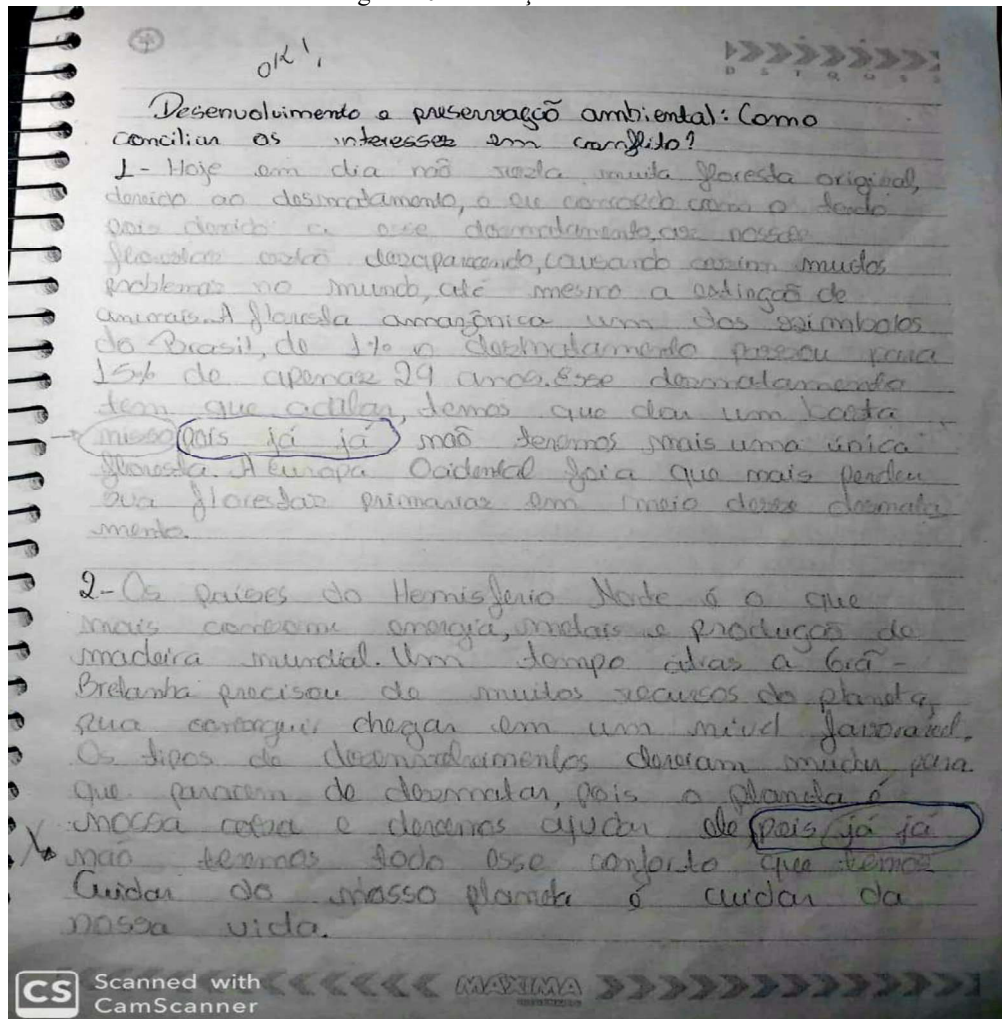 OK!
Desenvolvimento e preservação ambiental: Como
conciliar os interesses em conflito?
1- Hoje em dia não resta muita floresta original,
devido ao desmatamento, o eu concordo com o
pois devido a esse desmatamento, as nossas
florestas estão desaparecendo, causando assim muitos
problemas no mundo, até mesmo a extinção de
animais. A floresta amazônica um dos símbolos
do Brasil, de 1% o desmatamento passou para
15% de apenas 29 anos. Esse desmatamento
tem que, temos que dar um basta
nisso pois já já não teremos mais uma única
floresta. A europa Ocidental foi a que mais perdeu
sua florestas primarias em meio desse desmata
mento.
2- Os países do Hemisferio Norte é o que
mais consome energia, metais e produção de
madeira mundial. Um tempo atras a Grã-
Bretanha precisou de muitos recursos do planeta,
chegar em um nivel favoravel.
Os tipos de desenvolvimentos deveram mudar, para
que pararem de desmatar, pois o planeta é
nossa casa e devemos ajudar ele pois já já
não teremos todo esse conforto que temos
Cuidar do nosso planeta é cuidar da
nossa vida.
CS Scanned with
CamScanner
MÁXIMA